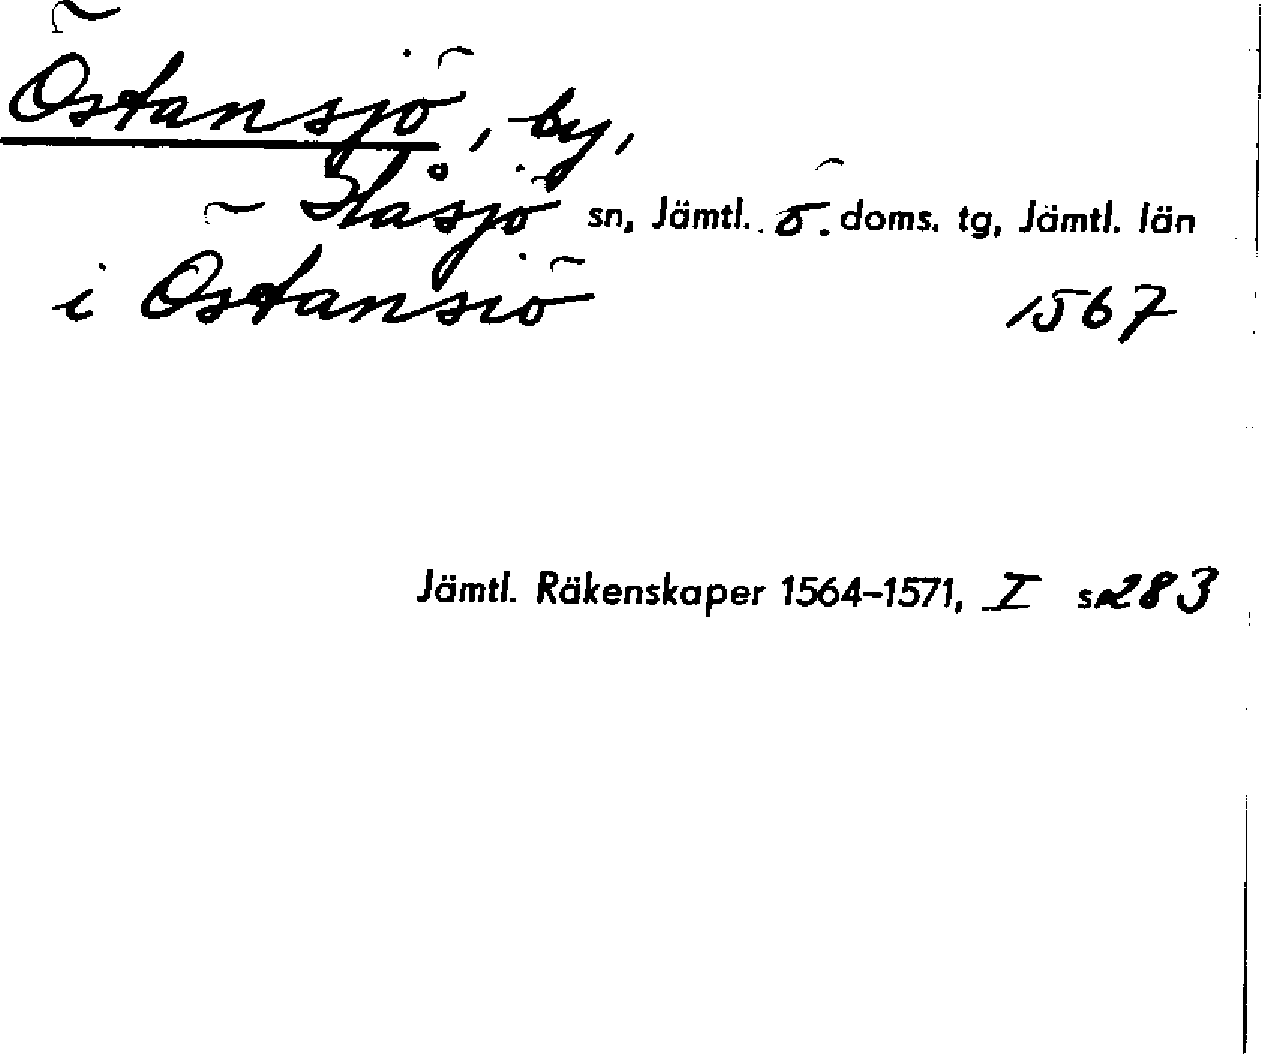 Östansjö, by,
Håsjö sn, Jämtl. ö. doms. tg, Jämtl. län
i Östansiö 1567
Jämtl. Räkenskaper 1564–1571, I s. 283